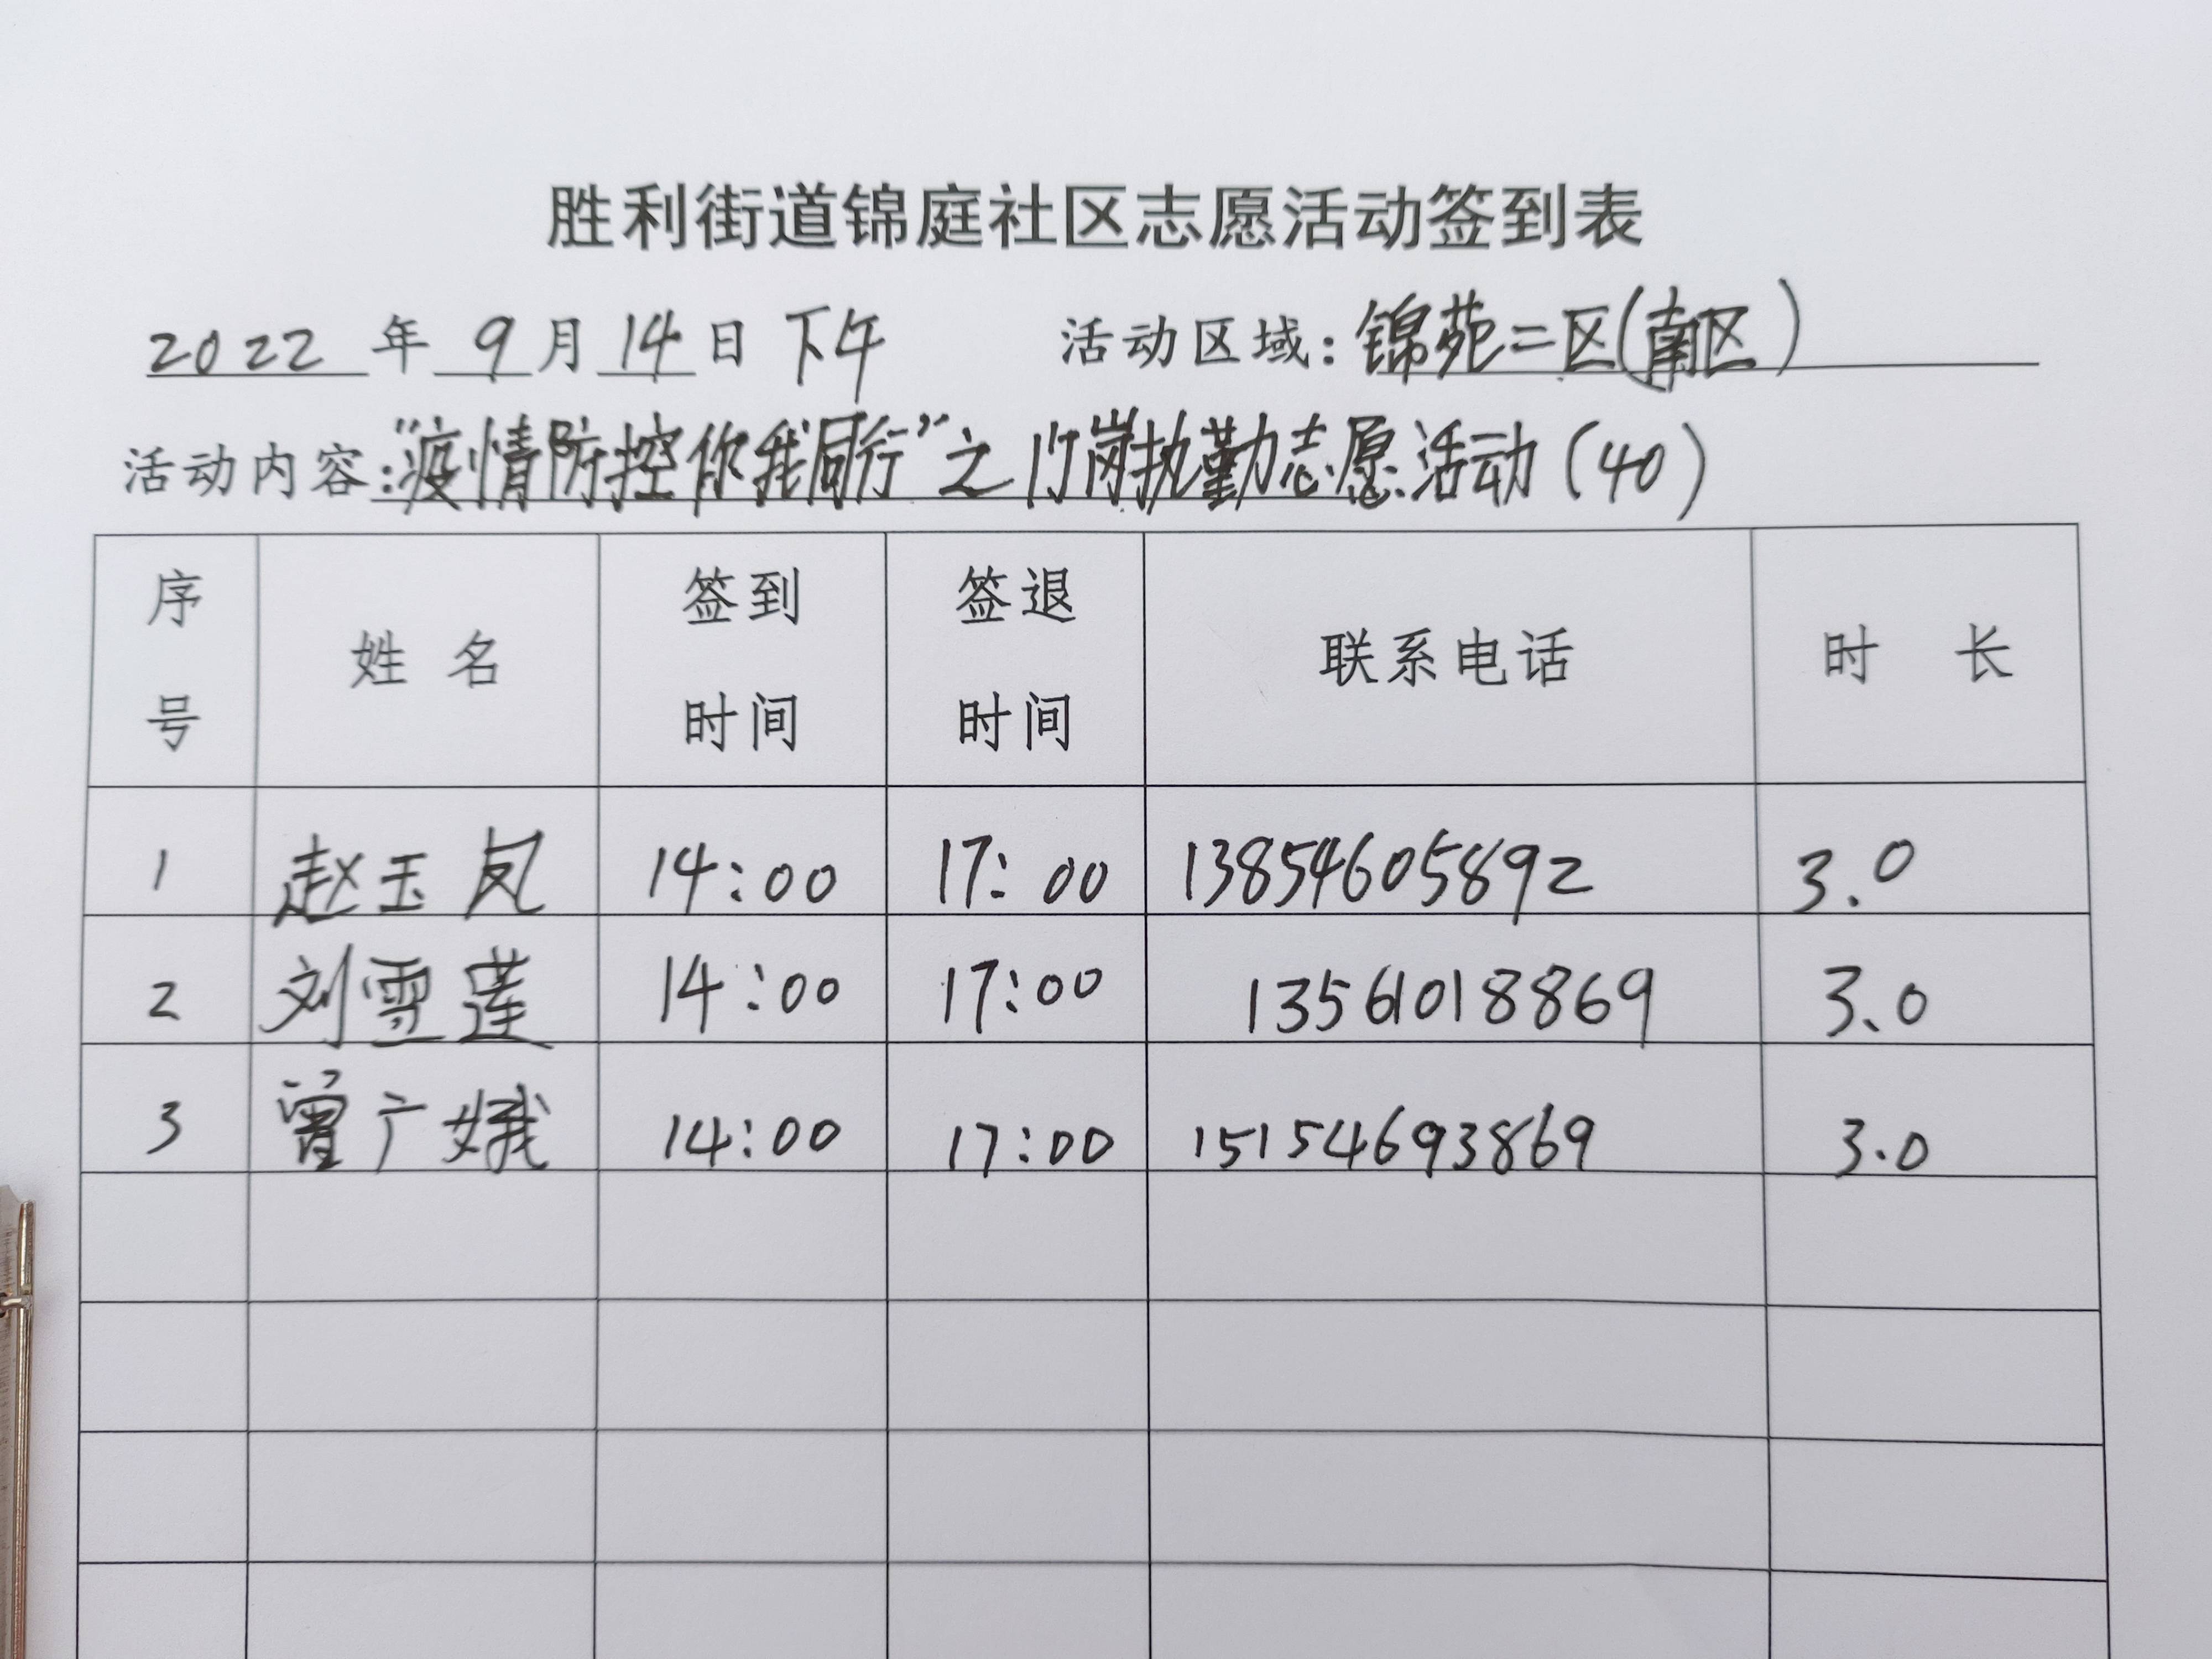 胜利街道锦庭社区志愿活动签到表
2022年9月14日下午 活动区域:锦苑二区(南区)
活动内容:"疫情防控你我同行"之门岗执勤志愿活动(40)
序号 姓名 签到时间 签退时间 联系电话 时长
1 赵玉凤 14:00 17:00 13854605892 3.0
2 刘雪莲 14:00 17:00 13561018869 3.0
3 曾广娥 14:00 17:00 15154693869 3.0